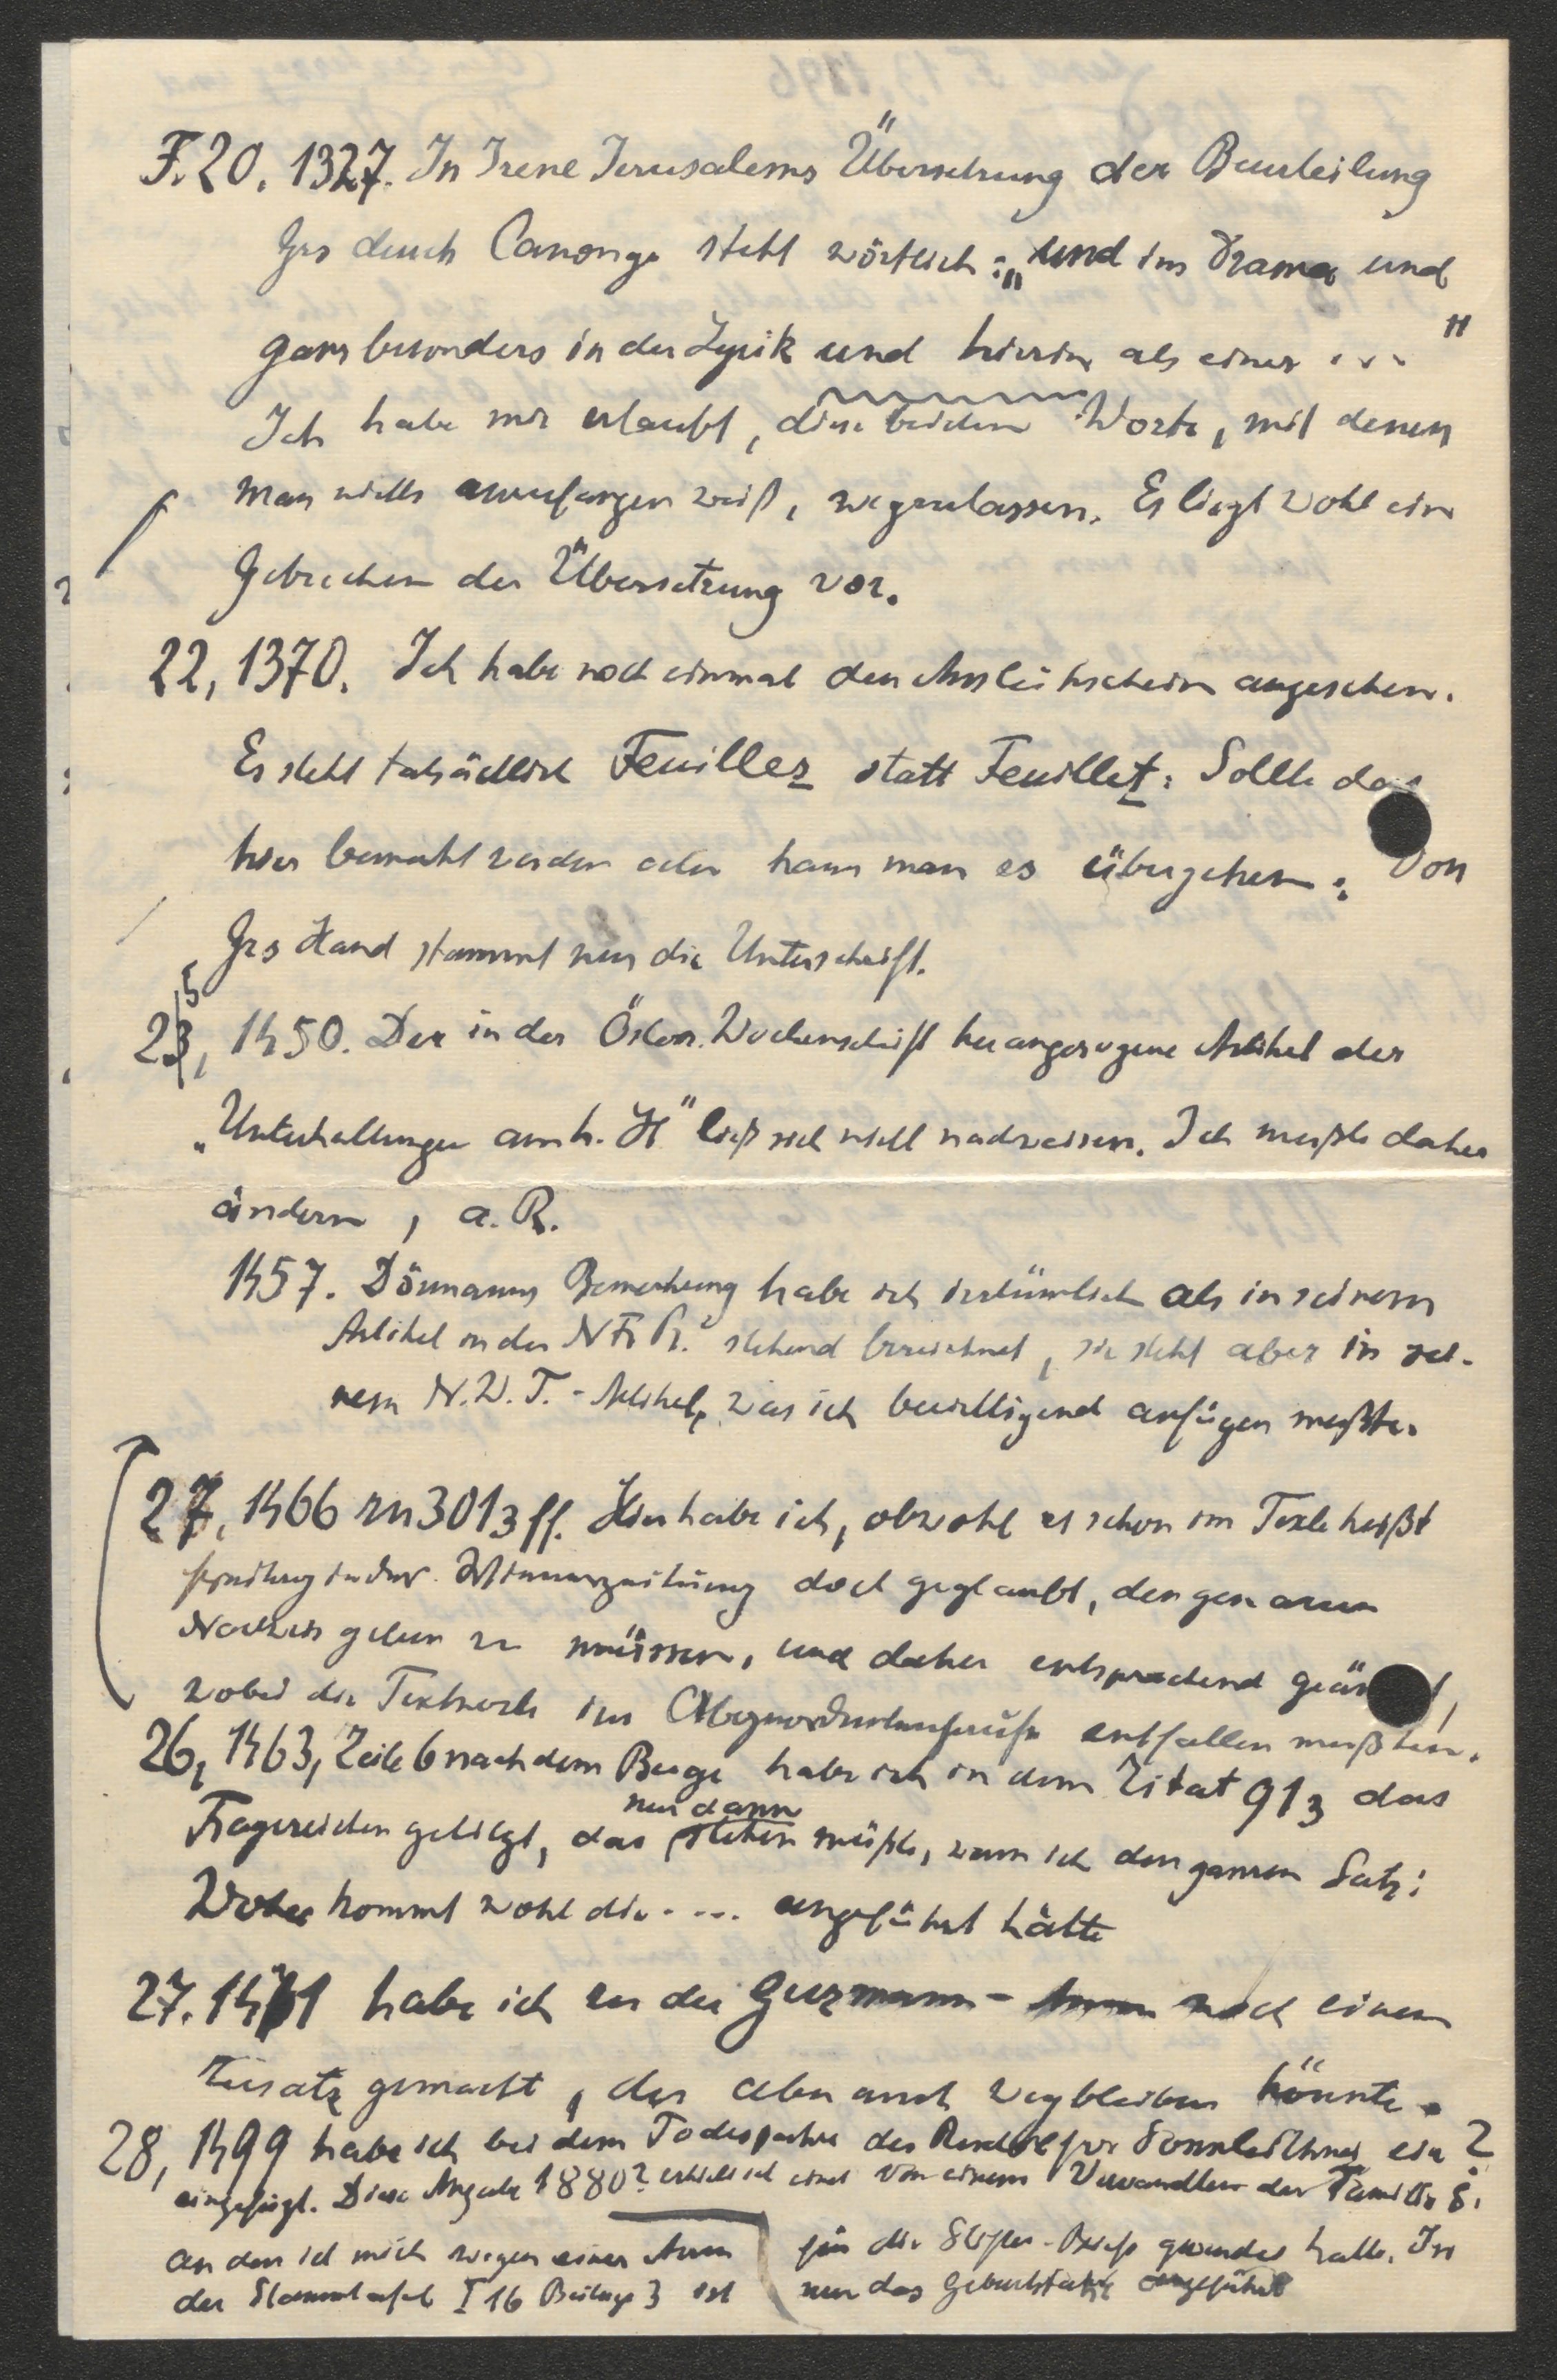 F. 20, 1327. In Irene Jerusalems Übersetzung der Beurteilung
Grs durch Canonge steht wörtlich: „und im Drama und
ganz besonders in der Lyrik und hierin als einer ...“
Ich habe mir erlaubt, diese beiden Worte, mit denen
man nichts anzufangen weiß, wegzulassen. Es liegt wohl ein
Gebrechen der Übersetzung vor.
22, 1370. Ich habe noch einmal den Ausleihschein angesehen.
Es steht tatsächlich Feuillez statt Feuillet: Sollte das
hier bemerkt werden oder kann man es übergehen? Von
Grs Hand stammt nur die Unterschrift.
25, 1450. Der in der Österr. Wochenschrift herangezogene Artikel der
„Unterhaltungen am h. H“ ließ sich nicht nachweisen. Ich mußte daher
ändern, a. R.
1457. Dörmanns Bemerkung habe ich irrtümlich als in seinem
Artikel in der N Fr Pr. stehend bezeichnet, sie steht aber in sei-
nem N. W. T. - Artikel, was ich anfügen mußte.
27, 1466 zu 301 3 ff. Hier habe ich, obwohl es schon im Texte heißt
doch geglaubt, den genauen
Nachweis geben zu müssen, und daher entsprechend geän
wobei die Textworte im entfallen mußten.
26, 1463, Zeile 6 nach dem Buge habe ich in dem Zitat 91 3 das
Fragezeichen getilgt, das nur dann stehen müßte, wenn ich den ganzen Satz:
Woher kommt wohl die .... angeführt hätte
27. 14 1 habe ich zu der noch einen
Zusatz gemacht, der aber auch wegbleiben könnte.
28, 1499 habe ich bei dem Todesjahre des Sonnleithner ein ?
eingefügt. Diese Angabe 1880? erhielt ich einst von einem Verwandten der Familie S.
an den ich mich wegen einer Anm für die Stifter-Briefe gewendet hatte. In
der Stammtafel I 16 Beilage 3 ist nur das Geburtsjahr angeführt